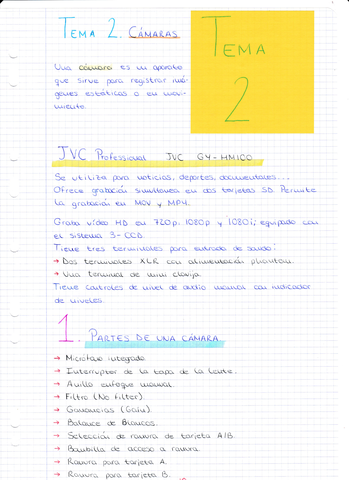 TEMA 2. CÁMARAS
TEMA
2
Una cámara es un aparato
que sirve para registrar imá-
genes estáticas o en movi-
miento.
JVC Professional JVC GY-HM100
Se utiliza para noticias, deportes, documentales...
Ofrece grabación simultánea en dos tarjetas SD. Permite
la grabación en MOV y MP4.
Graba vídeo HD en 720p, 1080p y 1080i; equipado con
el sistema 3-CCD.
Tiene tres terminales para entrada de sonido:
→ Dos terminales XLR con alimentación phantom.
→ Una terminal de mini clavija.
Tiene controles de nivel de audio manual con indicador
de niveles.
1. PARTES DE UNA CÁMARA.
→ Micrófono integrado
→ Interruptor de la tapa de la lente.
→ Anillo enfoque manual.
→ Filtro (No filter).
→ Ganancias (Gain).
→ Balance de Blancos.
→ Selección de ranura de tarjeta A/B.
→ Bombilla de acceso a ranura.
→ Ranura para tarjeta A.
→ Ranura para tarjeta B.